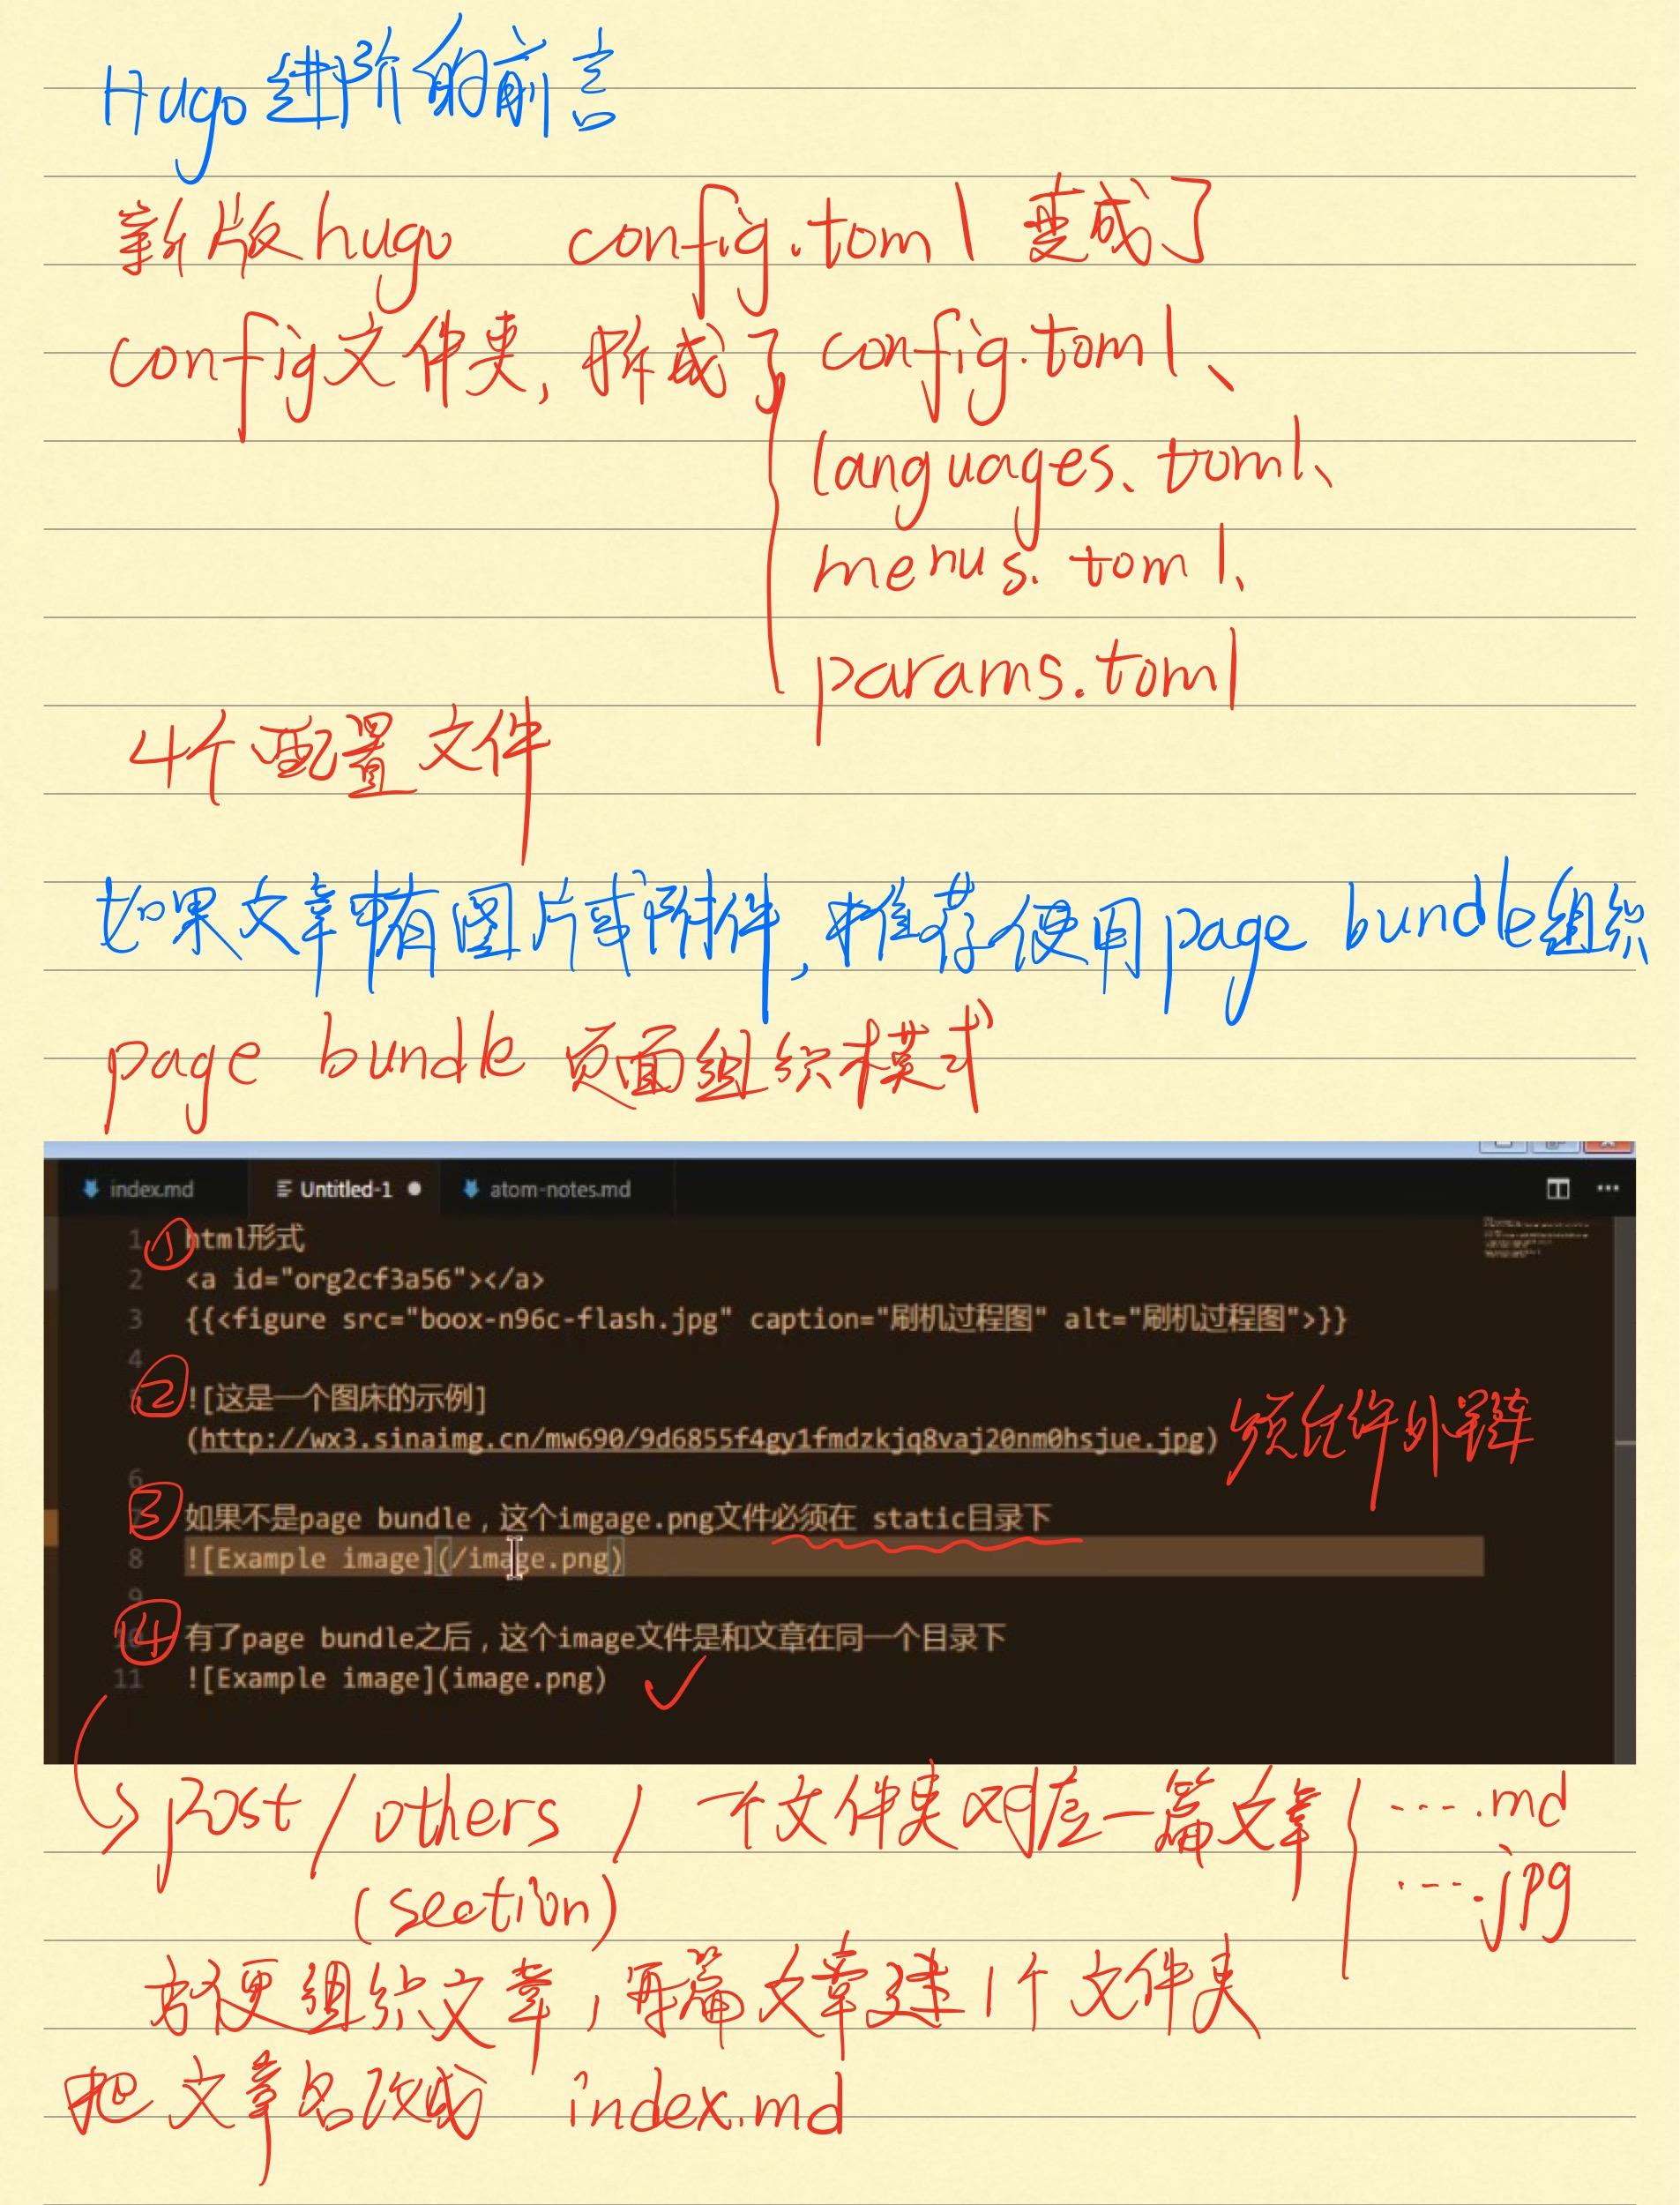 Hugo 进阶的前言
新版hugo config.toml 变成了
config文件夹, 拆成了 config.toml、
languages.toml、
menus.toml、
params.toml
4个配置文件
如果文章中有图片或附件,推荐使用page bundle组织
page bundle 页面组织模式
index.md Untitled-1 atom-notes.md
1 ① html形式
2 <a id="org2cf3a56"></a>
3 {{<figure src="boox-n96c-flash.jpg" caption="刷机过程图" alt="刷机过程图">}}
4
② ![这是一个图床的示例]
(http://wx3.sinaimg.cn/mw690/9d6855f4gy1fmdzkjq8vaj20nm0hsjue.jpg) 须允许外链
6
③ 如果不是page bundle，这个imgage.png文件必须在 static目录下
8 ![Example image](/image.png)
9
④ 有了page bundle之后，这个image文件是和文章在同一个目录下
11 ![Example image](image.png) ✓
post / others / 一个文件夹对应一篇文章 ....md
(section) ....jpg
方便组织文章, 每篇文章建1个文件夹
把文章名改成 index.md